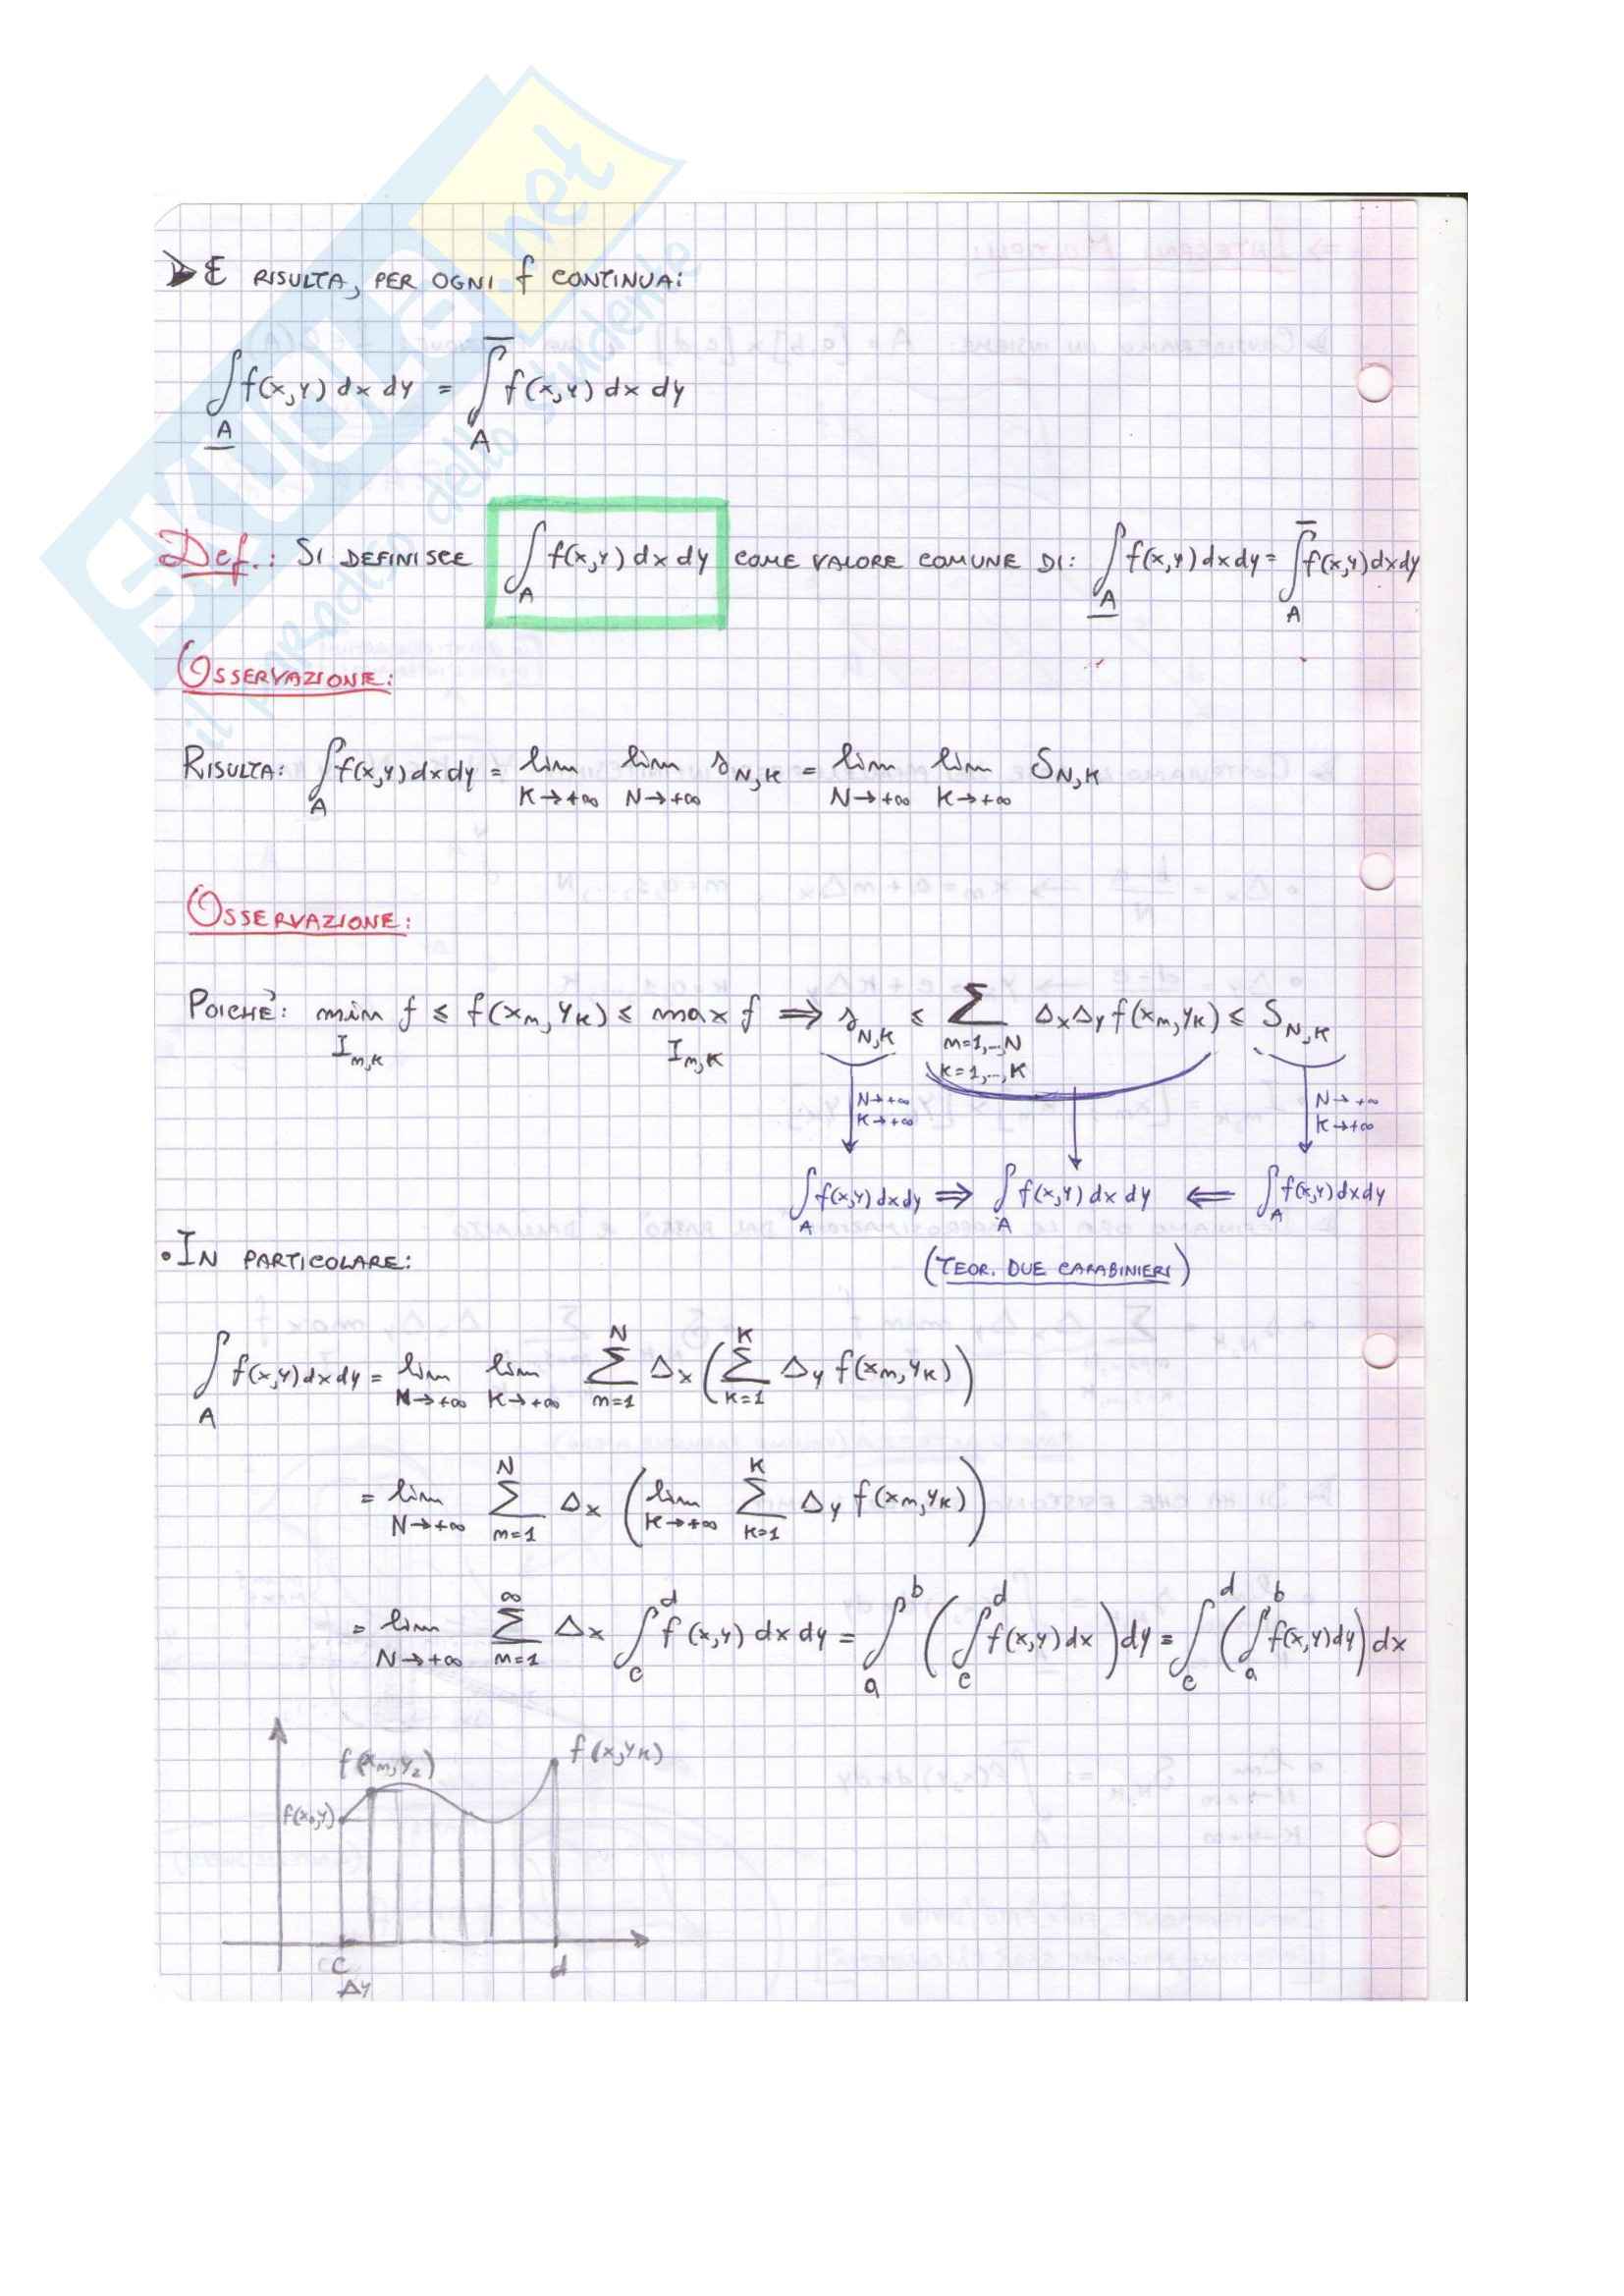 SKUOLA.net
il paradiso dello studente
➤ E RISULTA, PER OGNI f CONTINUA:
∫_A̲ f(x,y) dx dy = ∫̅_A f(x,y) dx dy
Def.: SI DEFINISCE ∫_A f(x,y) dx dy COME VALORE COMUNE DI: ∫_A̲ f(x,y) dx dy = ∫̅_A f(x,y) dx dy
OSSERVAZIONE:
RISULTA: ∫_A f(x,y) dx dy = lim_{K→+∞} lim_{N→+∞} s_{N,K} = lim_{N→+∞} lim_{K→+∞} S_{N,K}
OSSERVAZIONE:
POICHÈ: min_{I_{m,K}} f ≤ f(x_m, y_K) ≤ max_{I_{m,K}} f ⇒ s_{N,K} ≤ ∑_{m=1,..,N K=1,..,K} Δ_x Δ_y f(x_m, y_K) ≤ S_{N,K}
N→+∞ K→+∞ N→+∞ K→+∞
∫_A f(x,y) dx dy ⇒ ∫_A f(x,y) dx dy ⇐ ∫_A f(x,y) dx dy
(TEOR. DUE CARABINIERI)
• IN PARTICOLARE:
∫_A f(x,y) dx dy = lim_{N→+∞} lim_{K→+∞} ∑_{m=1}^{N} Δ_x (∑_{K=1}^{K} Δ_y f(x_m, y_K))
= lim_{N→+∞} ∑_{m=1}^{N} Δ_x (lim_{K→+∞} ∑_{K=1}^{K} Δ_y f(x_m, y_K))
= lim_{N→+∞} ∑_{m=1}^{∞} Δ_x ∫_c^d f(x,y) dx dy = ∫_a^b (∫_c^d f(x,y) dx) dy = ∫_c^d (∫_a^b f(x,y) dy) dx
f(x_m, y_2)
f(x, y_K)
f(x_0, y)
c
d
Δy